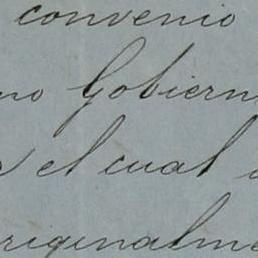 convenio
no Gobiern
el cual
riginalme